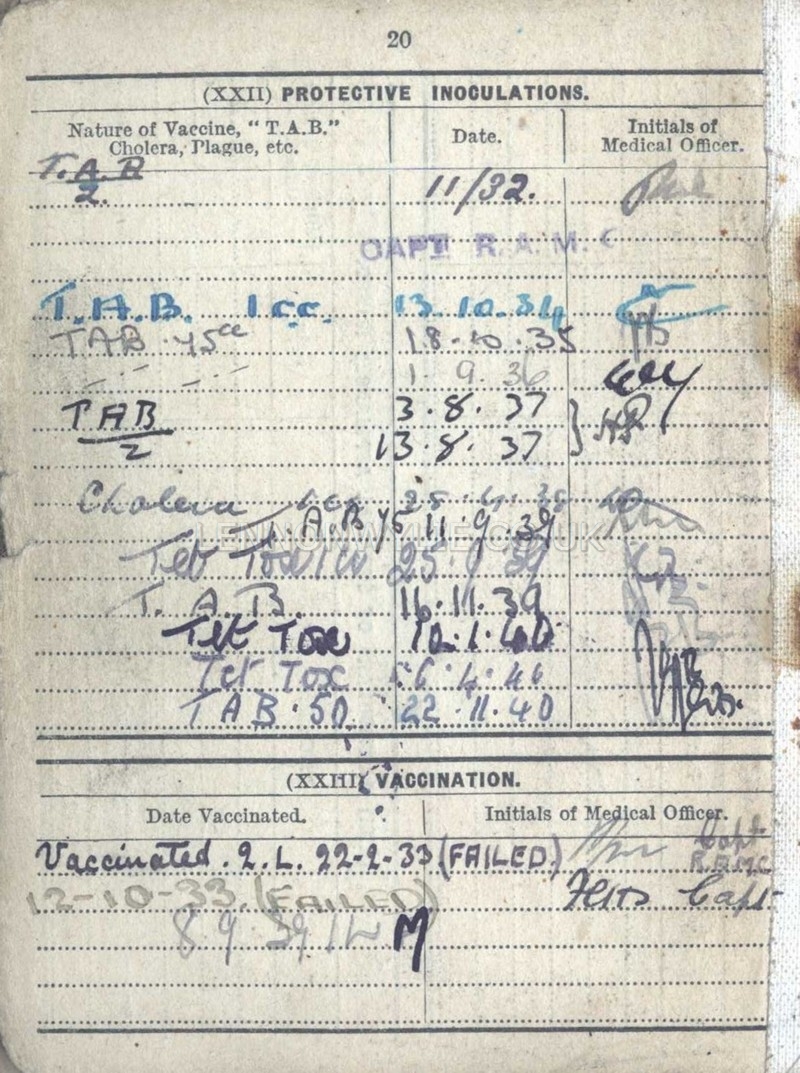 20
(XXII) PROTECTIVE INOCULATIONS.
Nature of Vaccine, "T.A.B." Date. Initials of
Cholera, Plague, etc. Medical Officer.
T.A.B
2. 11/32.
CAPT R.A.M.C
T.A.B. 1 c.c. 13.10.34
TAB .75cc 18.10.35
1.9.36
TAB 3.8.37
2 13.8.37
Cholera
T.A.B 75 11.9.39
LENNONWYLIE.CO.UK
Tet Tox 1cc 25.9.39
T.A.B. 16.11.39
Tet Tox 12.1.40
Tet Tox 6.4.40
TAB .50 22.11.40
(XXIII) VACCINATION.
Date Vaccinated. Initials of Medical Officer.
Vaccinated. 2.L. 22-2-33 (FAILED.) Capt
R.A.M.C
12-10-33. (FAILED) Capt
8 9 39 M